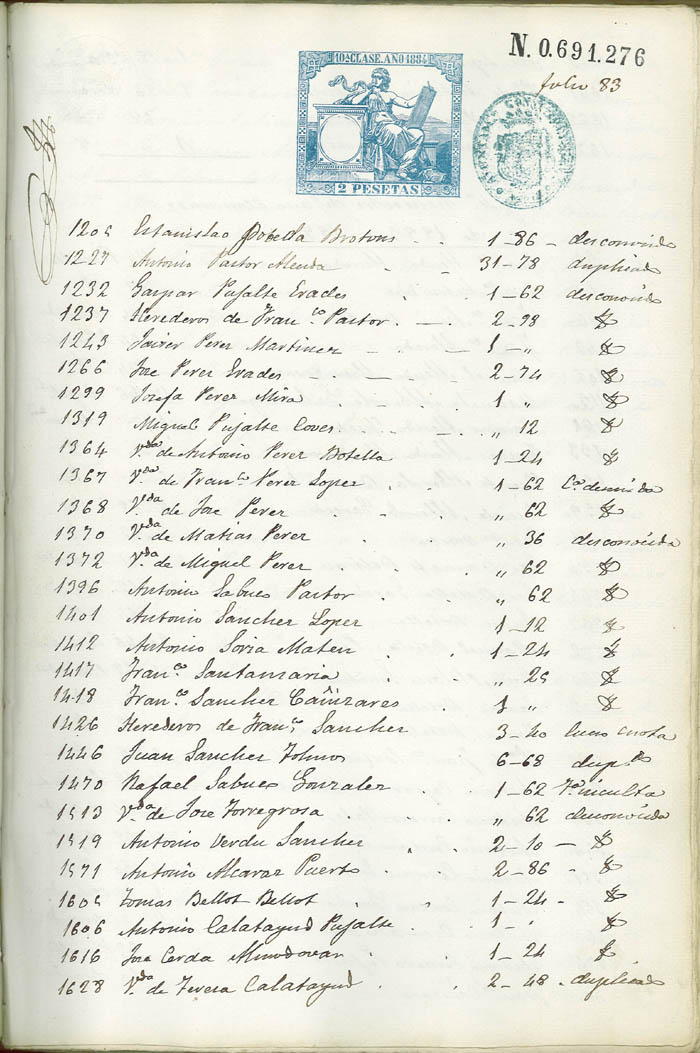 10ª CLASE. AÑO 1884
N. 0.691.276
folio 83
2 PESETAS
1205 Estanislao Botella Brotons . . 1-86 - desconocido
1227 Antonio Pastor Alenda . . 31-78 duplicado
1232 Gaspar Pujalte Erades . . 1-62 desconocido
1237 Herederos de Franco Pastor . - . 2-98 &
1243 Javier Perez Martinez - . - 1 - „ &
1266 Jose Perez Erades . - . 2-74 &
1299 Josefa Perez Mira . . 1 „ &
1319 Miguel Pujalte Coves . - . „ 12 &
1364 Vda de Antonio Perez Botella 1-24 &
1367 Vda de Franco Perez Lopez . . 1-62
1368 Vda de Jose Perez . . „ 62 &
1370 Vda de Matias Perez „ 36 desconocida
1372 Vda de Miguel Perez . . „ 62 &
1396 Antonio Sabues Pastor . „ 62 &
1401 Antonio Sanchez Lopez 1-12 &
1412 Antonio Soria Mateu . 1-24 &
1417 Franco Santamaria . „ 25 &
1418 Franco Sanchez Cañizares . 1 „ &
1426 Herederos de Franco Sanchez 3-40 cuota
1446 Juan Sanchez Tolmos 6-68 dupdo
1470 Rafael Sabues Gonzalez . 1-62
1513 Vda de Jose Torregrosa . „ 62 desconocida
1519 Antonio Verdu Sanchez . 2-10 - &
1571 Antonio Alcaraz Puerto . 2-86 - &
1605 Tomas Bellot Bellot . . 1-24 - &
1606 Antonio Calatayud Pujalte . 1 - . &
1616 Jose Cerda Almodovar . 1-24 &
1628 Vda de Teresa Calatayud . . 2-48 - duplicado